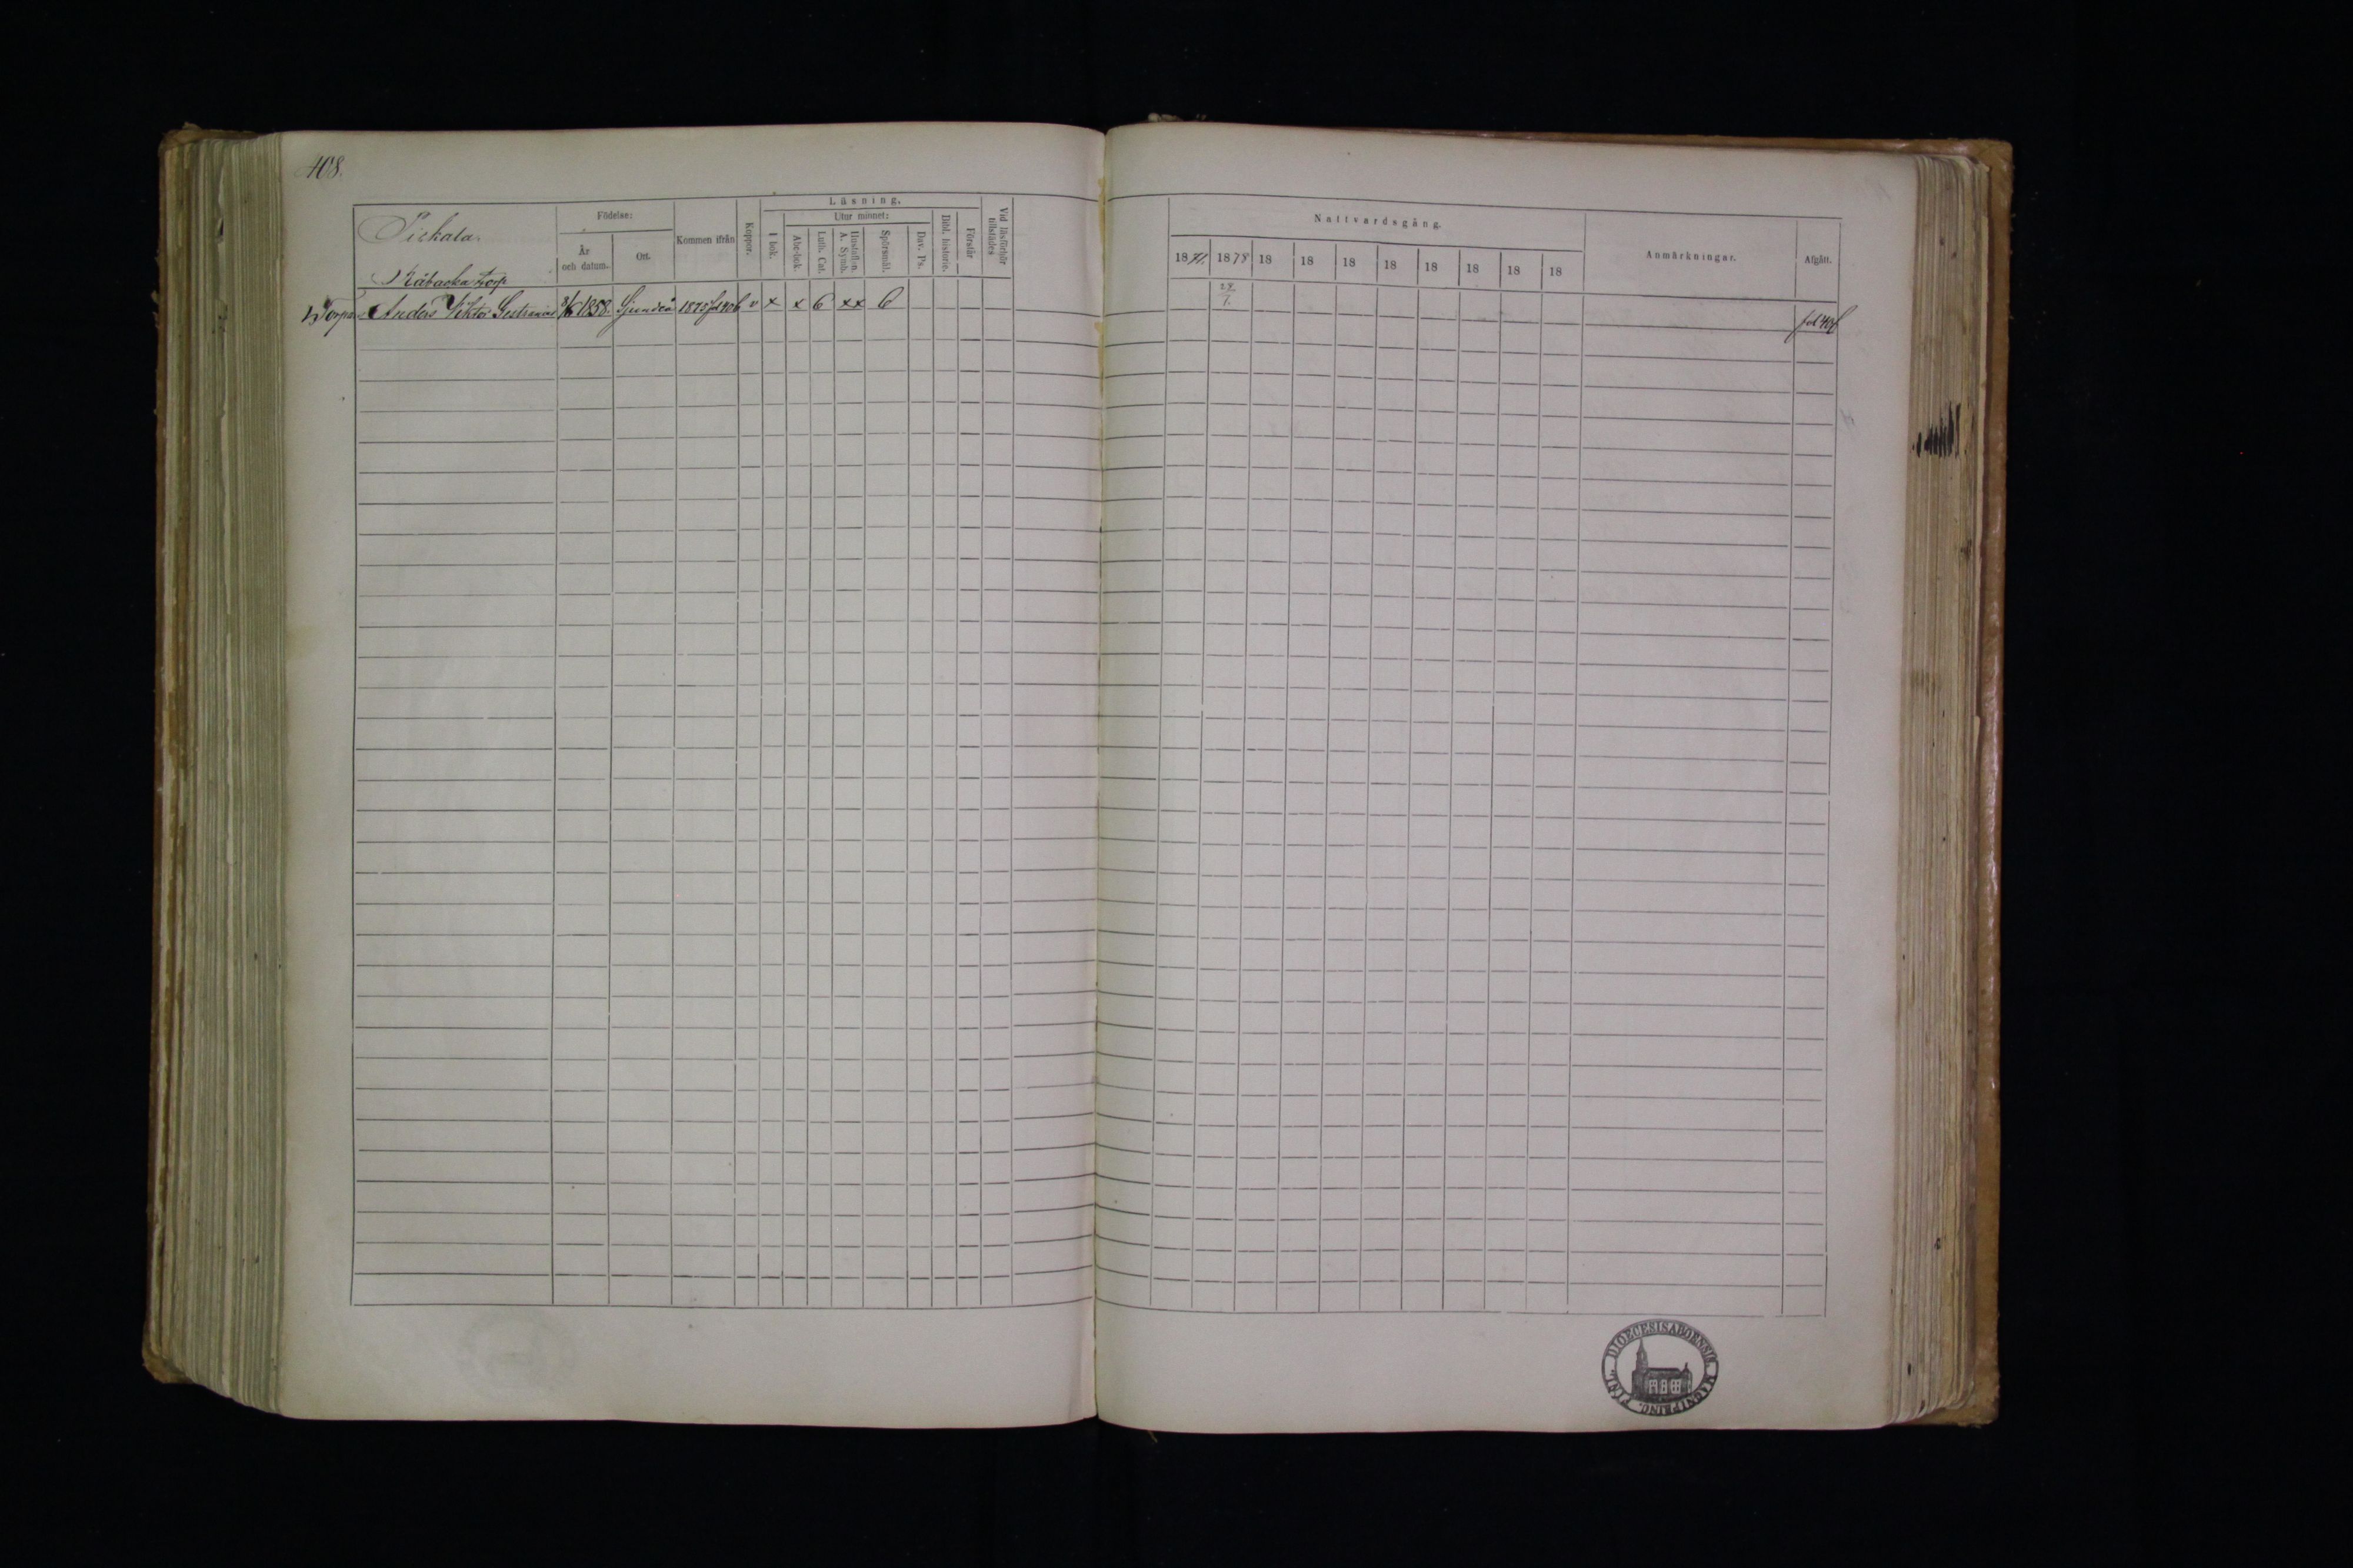 408.
Pickala.
Råbacka torp
Födelse:
År och datum.
Ort.
Kommen ifrån
Koppor.
Läsning.
I bok.
Utur minnet:
Abc-bok.
Luth. Cat.
Hustaflan. A. Symb.
Spörsmål.
Dav. Ps.
Bibl. historie.
Förstår
Vid läsförhör tillstädes
Nattvardsgång.
18 1878 18 18 18 18 18 18 18 18
Anmärkningar.
Afgått.
Anders Viktor 8/6 1858. Sjundeå 1875 fol 406 v x x 6 xx 6
fol 406
DIOECESIS ABOENSIS. MAGNI PRINC. FINL.